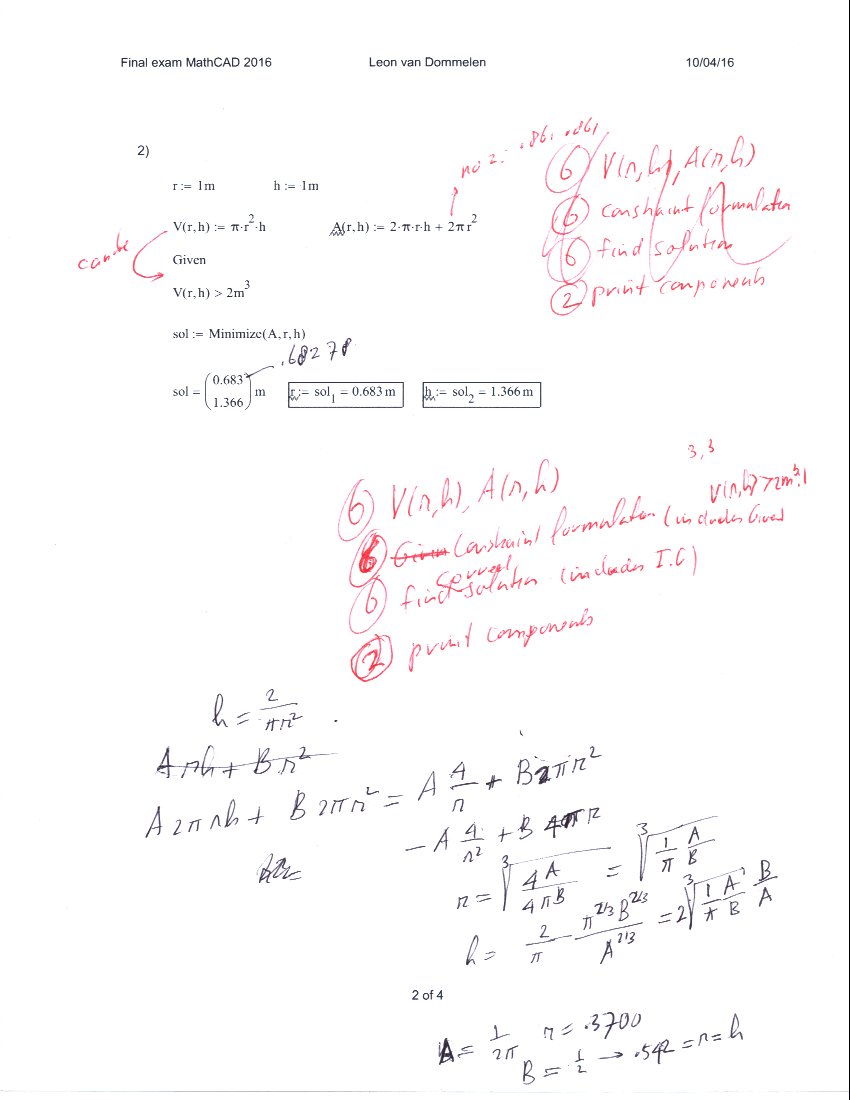 Final exam MathCAD 2016 Leon van Dommelen 10/04/16
no 2: .861 .861
2)
⑥ V(r,h), A(r,h)
r := 1m h := 1m
⑥ constraint formulation
V(r,h) := π·r²·h A(r,h) := 2·π·r·h + 2π r²
can be
⑥ find solution
Given
② print components
V(r,h) > 2m³
sol := Minimize(A,r,h)
.68278
sol = (0.683 1.366) m r := sol₁ = 0.683 m h := sol₂ = 1.366 m
3,3
⑥ V(r,h), A(r,h)
V(r,h)>2m³!
⑥ Given Constraint formulation (includes Given
⑥ find solution (includes I.C)
② print components
h = 2/πr²
A rh + B r²
A 2πrh + B 2πr² = A 4/r + B 2πr²
-A 4/r² + B 4π r
r = ∛(4A/4πB) = ∛(1/π A/B)
h = 2/π π^2/3 B^2/3 / A^2/3 = 2∛(1/π A/B) B/A
2 of 4
A = 1/2π r = .3700
B = 1/2 → .542 = r = h